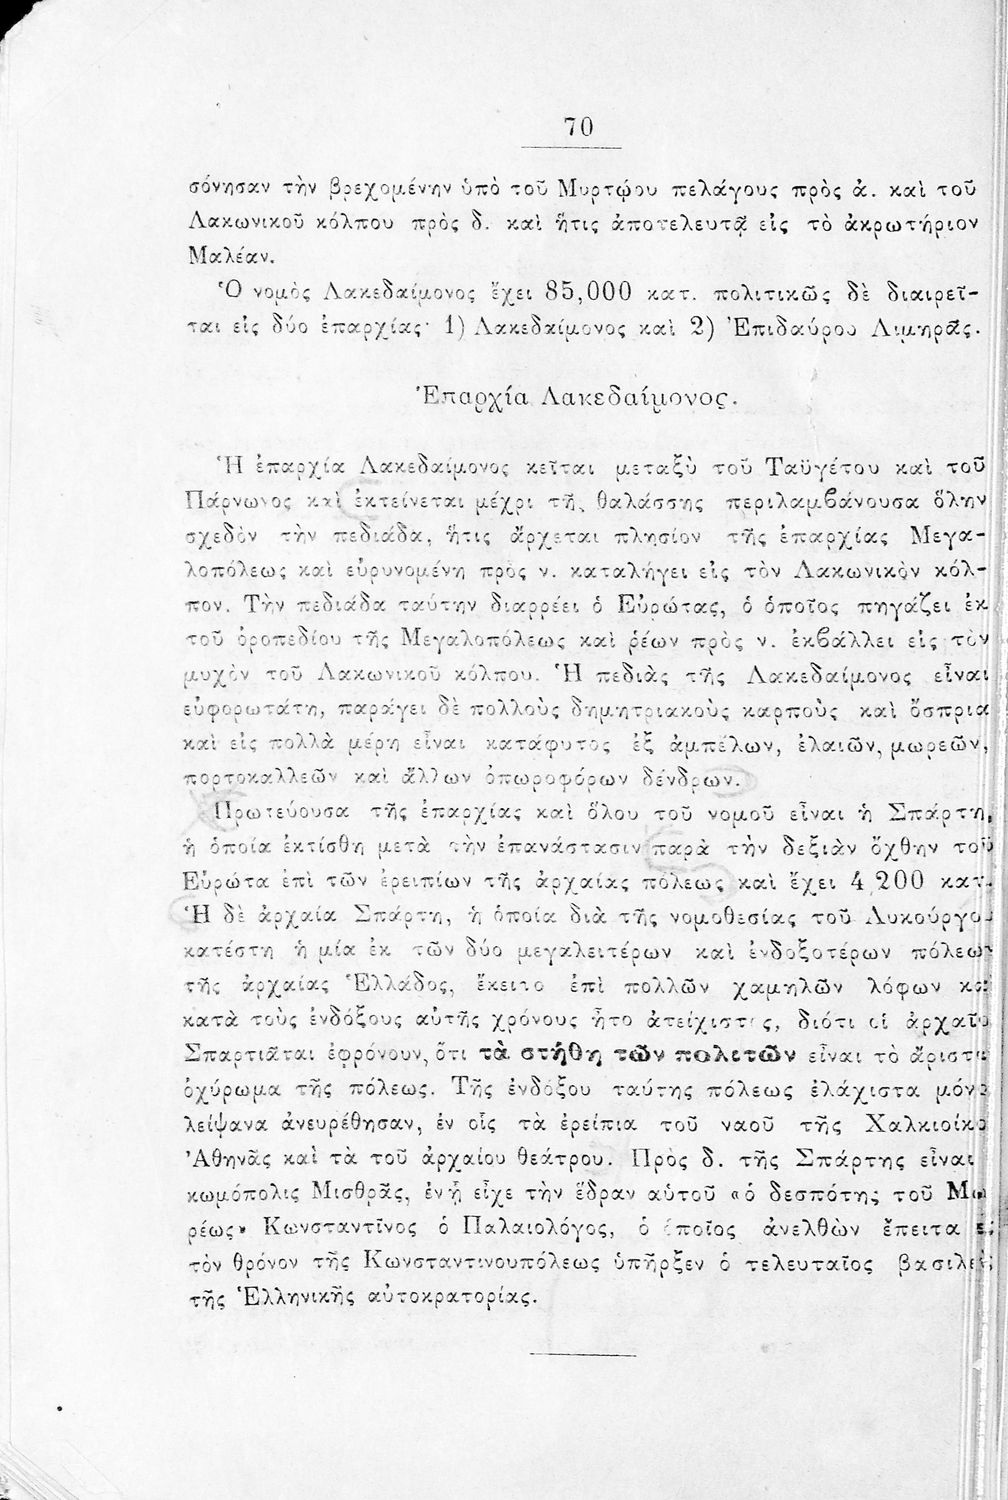 70
σόνησαν τὴν βρεχομένην ὑπὸ τοῦ Μυρτῴου πελάγους πρὸς ἀ. καὶ τοῦ
Λακωνικοῦ κόλπου πρὸς δ. καὶ ἥτις ἀποτελευτᾷ εἰς τὸ ἀκρωτήριον
Μαλέαν.
Ὁ νομὸς Λακεδαίμονος ἔχει 85,000 κατ. πολιτικῶς δὲ διαιρεῖ-
ται εἰς δύο ἐπαρχίας· 1) Λακεδαίμονος καὶ 2) Ἐπιδαύρου Λιμηρᾶς.
Ἐπαρχία Λακεδαίμονος.
Ἡ ἐπαρχία Λακεδαίμονος κεῖται μεταξὺ τοῦ Ταϋγέτου καὶ τοῦ
Πάρνωνος καὶ ἐκτείνεται μέχρι τῆς θαλάσσης περιλαμβάνουσα ὅλην
σχεδὸν τὴν πεδιάδα, ἥτις ἄρχεται πλησίον τῆς ἐπαρχίας Μεγα-
λοπόλεως καὶ εὐρυνομένη πρὸς ν. καταλήγει εἰς τὸν Λακωνικὸν κόλ-
πον. Τὴν πεδιάδα ταύτην διαρρέει ὁ Εὐρώτας, ὁ ὁποῖος πηγάζει ἐκ
τοῦ ὀροπεδίου τῆς Μεγαλοπόλεως καὶ ῥέων πρὸς ν. ἐκβάλλει εἰς τὸν
μυχὸν τοῦ Λακωνικοῦ κόλπου. Ἡ πεδιὰς τῆς Λακεδαίμονος εἶναι
εὐφορωτάτη, παράγει δὲ πολλοὺς δημητριακοὺς καρποὺς καὶ ὄσπρια
καὶ εἰς πολλὰ μέρη εἶναι κατάφυτος ἐξ ἀμπέλων, ἐλαιῶν, μωρεῶν,
πορτοκαλλεῶν καὶ ἄλλων ὀπωροφόρων δένδρων.
Πρωτεύουσα τῆς ἐπαρχίας καὶ ὅλου τοῦ νομοῦ εἶναι ἡ Σπάρτη,
ἡ ὁποία ἐκτίσθη μετὰ τὴν ἐπανάστασιν παρὰ τὴν δεξιὰν ὄχθην τοῦ
Εὐρώτα ἐπὶ τῶν ἐρειπίων τῆς ἀρχαίας πόλεως καὶ ἔχει 4,200 κατ.
Ἡ δὲ ἀρχαία Σπάρτη, ἡ ὁποία διὰ τῆς νομοθεσίας τοῦ Λυκούργου
κατέστη ἡ μία ἐκ τῶν δύο μεγαλειτέρων καὶ ἐνδοξοτέρων πόλεων
τῆς ἀρχαίας Ἑλλάδος, ἔκειτο ἐπὶ πολλῶν χαμηλῶν λόφων καὶ
κατὰ τοὺς ἐνδόξους αὐτῆς χρόνους ἦτο ἀτείχιστος, διότι οἱ ἀρχαῖοι
Σπαρτιᾶται ἐφρόνουν, ὅτι τὰ στήθη τῶν πολιτῶν εἶναι τὸ ἄριστον
ὀχύρωμα τῆς πόλεως. Τῆς ἐνδόξου ταύτης πόλεως ἐλάχιστα μόνον
λείψανα ἀνευρέθησαν, ἐν οἷς τὰ ἐρείπια τοῦ ναοῦ τῆς Χαλκιοίκου
Ἀθηνᾶς καὶ τὰ τοῦ ἀρχαίου θεάτρου. Πρὸς δ. τῆς Σπάρτης εἶναι
κωμόπολις Μισθρᾶς, ἐν ᾗ εἶχε τὴν ἕδραν αὑτοῦ «ὁ δεσπότης τοῦ Μω
ρέως» Κωνσταντῖνος ὁ Παλαιολόγος, ὁ ὁποῖος ἀνελθὼν ἔπειτα εἰς
τὸν θρόνον τῆς Κωνσταντινουπόλεως ὑπῆρξεν ὁ τελευταῖος βασιλεὺς
τῆς Ἑλληνικῆς αὐτοκρατορίας.